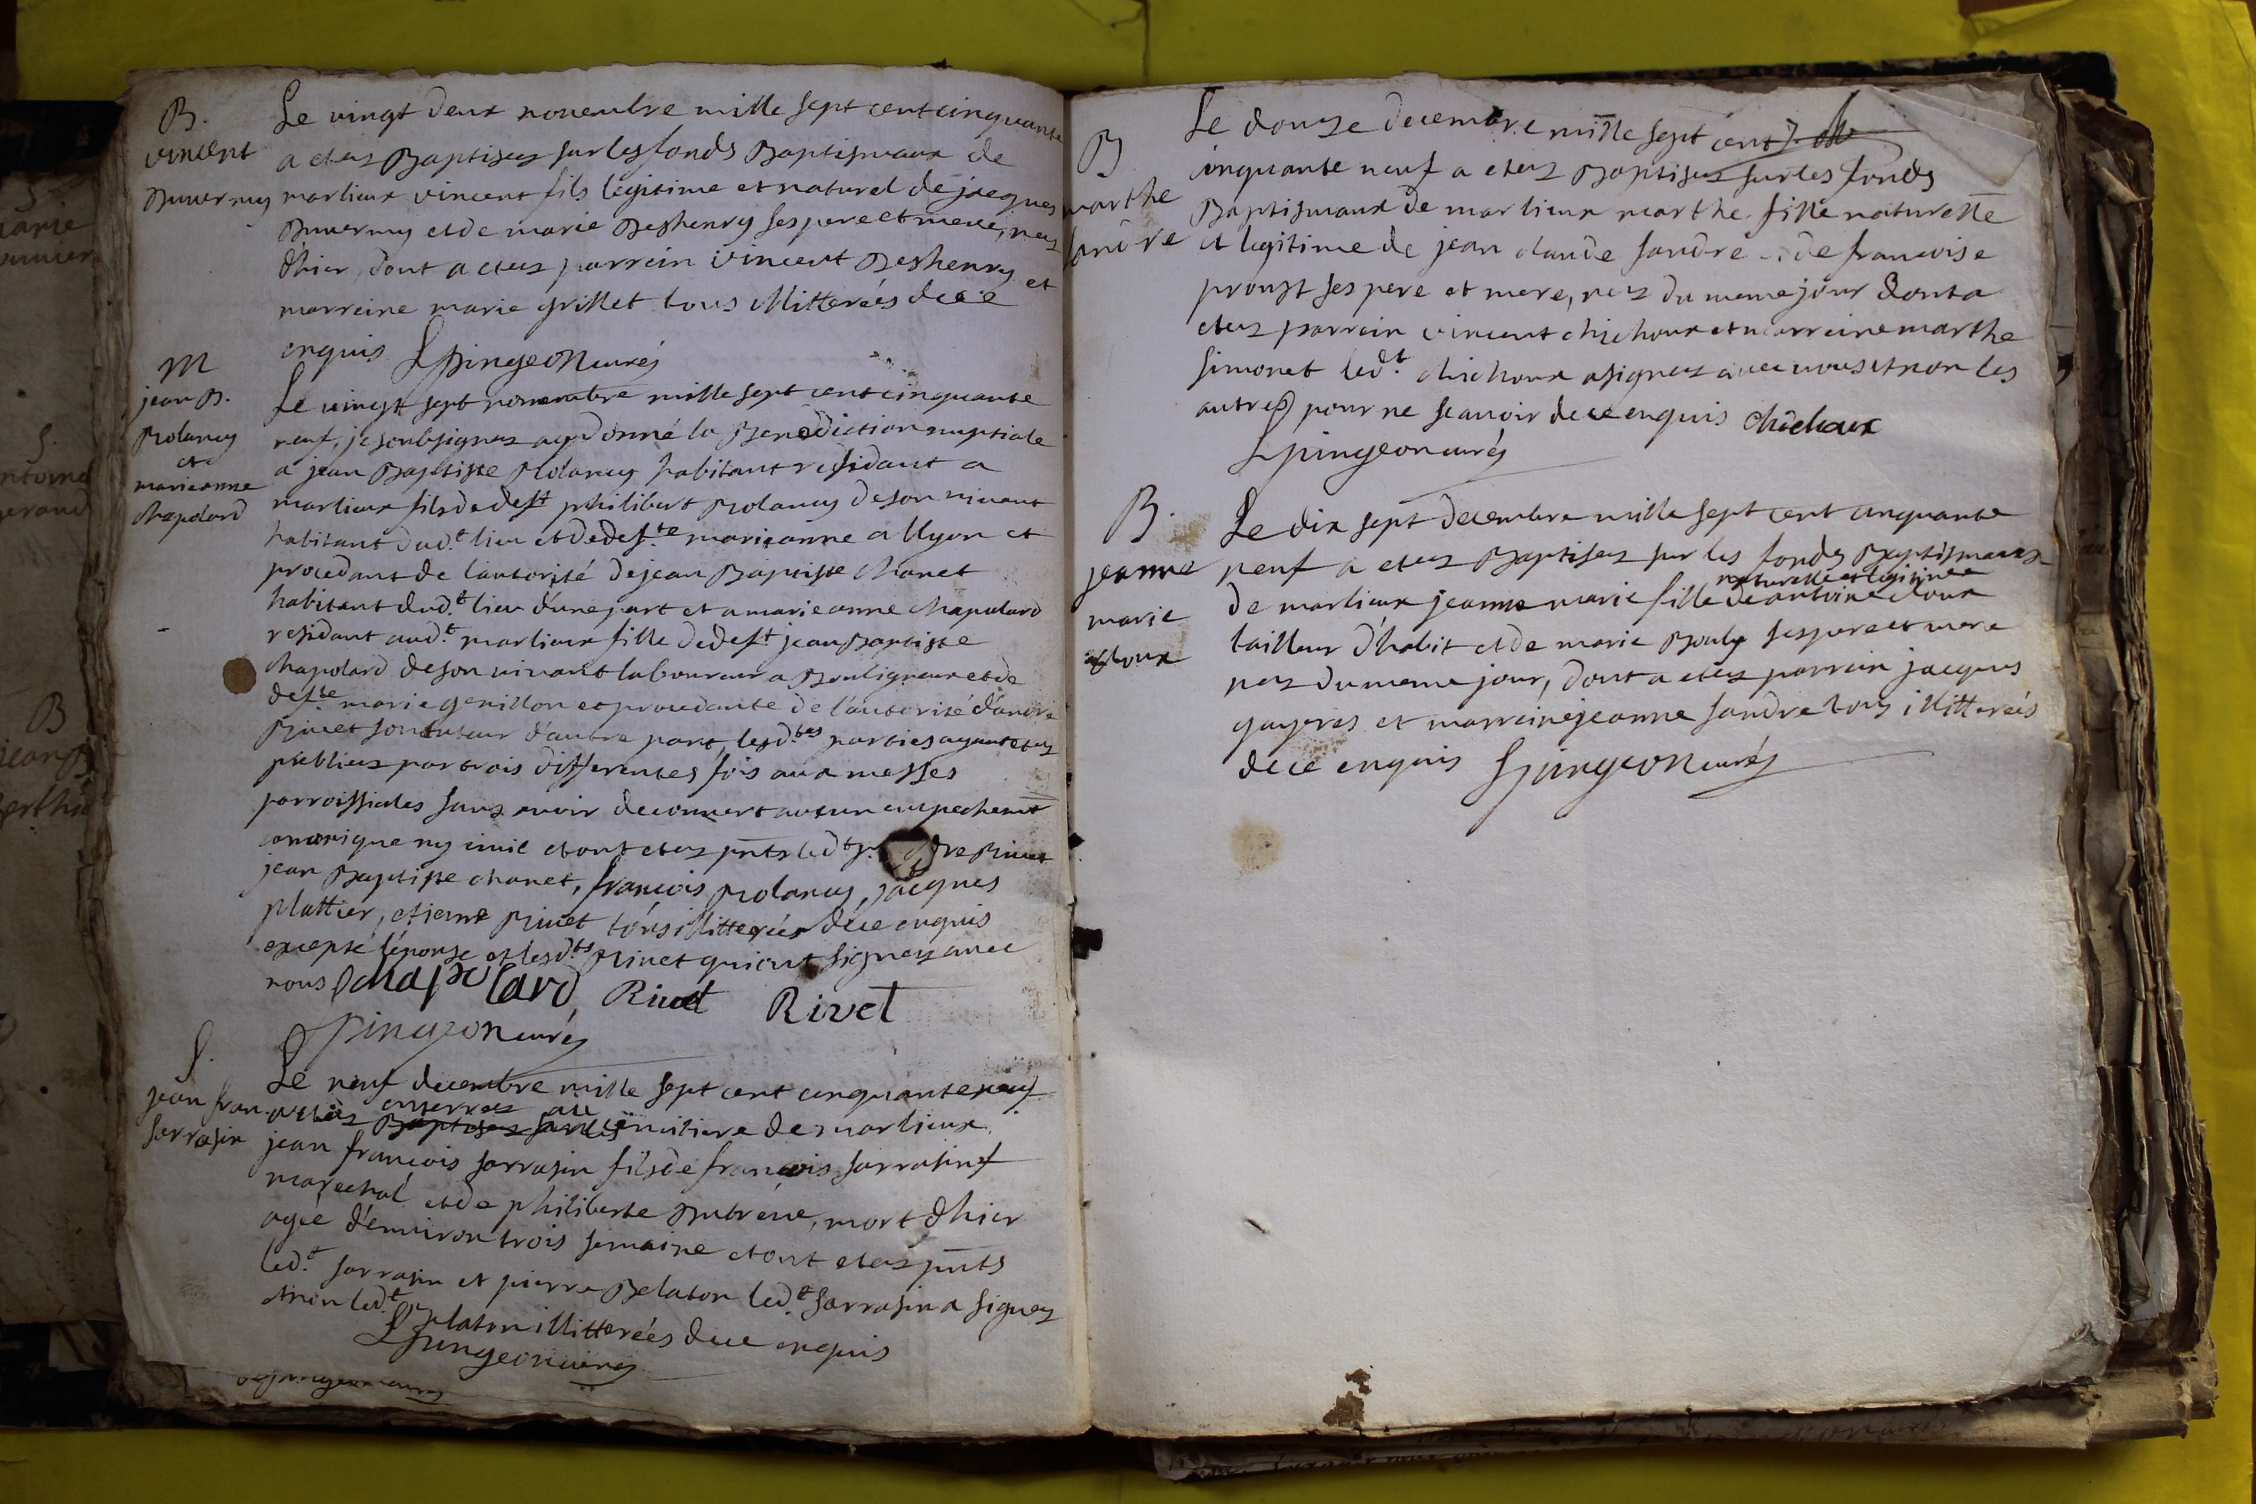 B.
vincent
Duverney
Le vingt deux novembre mille sept cent cinquante
a etez Baptisez sur les fonds Baptismaux de
marlieux vincent fils legitime et naturel de jacques
Duverney et de marie Deshenry ses pere et mere, nez
d'hier, dont a etez parrein vincent Deshenry et
marreine marie grillet tous illitterés de ce
enquis Spingeon curéz
M
jean B.
Rolancy
et
marieanne
chapolard
Le vingt sept novembre mille sept cent cinquante
neuf, je soubsignez ay donné la Benediction nuptiale
a jean Baptiste Rolancy habitant residant a
marlieux fils de deft philibert Rolancy de son vivant
habitant dud.t lieu et de defte marieanne allyon et
procedant de l'autorité de jean Baptiste chanet
habitant dud.t lieu d'une part et a marie anne chapolard
residant aud.t marlieux fille de deft jean Baptiste
chapolard de son vivant laboureur a Bouligneux et de
defte marie genillon et procedante de l'autorité d'andré
Rivet son tuteur d'autre part, lesd.tes parties ayant etez
publiez par trois differentes fois aux messes
parroissiales sans avoir decouvert aucun empechemt
canonique ny civil et ont etez pnts led.t dre Rivet
jean Baptiste chanet, francois Rolancy, jacques
plattier, etienne Rivet tous illitterés de ce enquis
excepté l'epouse et lesd.ts Rivet qui ont signez avec
nous chapolard Rivet Rivet
Spingeon curéz
S.
jean fran
sarrasin
Le neuf decembre mille sept cent cinquante neuf
a etez enterrez au
Baptisez sur les cimitiere de marlieux
jean francois sarrasin fils de francois sarrasin
marechal et de philiberte, mort d'hier
agée d'environ trois semaine et ont etez pnts
led.t sarrasin et pierre Belaton led.t sarrasin a signez
et non led.t Belaton illitterées de ce enquis
Spingeon curéz
B
marthe
sandre
Le douze decembre mille sept cent
cinquante neuf a etez Baptisez sur les fonds
Baptismaux de marlieux marthe fille naturelle
et legitime de jean claude sandre et de francoise
prouzt ses pere et mere, nez du meme jour dont a
etez parrein vincent chichoux et marreine marthe
simonet led.t chichoux a signez avec nous et non les
autres pour ne scavoir de ce enquis chichoux
Spingeon curéz
B.
jeanne
marie
cloux
Le dix sept decembre mille sept cent cinquante
neuf a etez Baptisez sur les fonds Baptismaux
naturelle et legitime
de marlieux jeanne marie fille de antoine cloux
tailleur d'habit et de marie Bouly ses pere et mere
nez du meme jour, dont a etez parrein jacques
gayeres et marreine jeanne sandre tous illitterés
de ce enquis Spingeon curéz